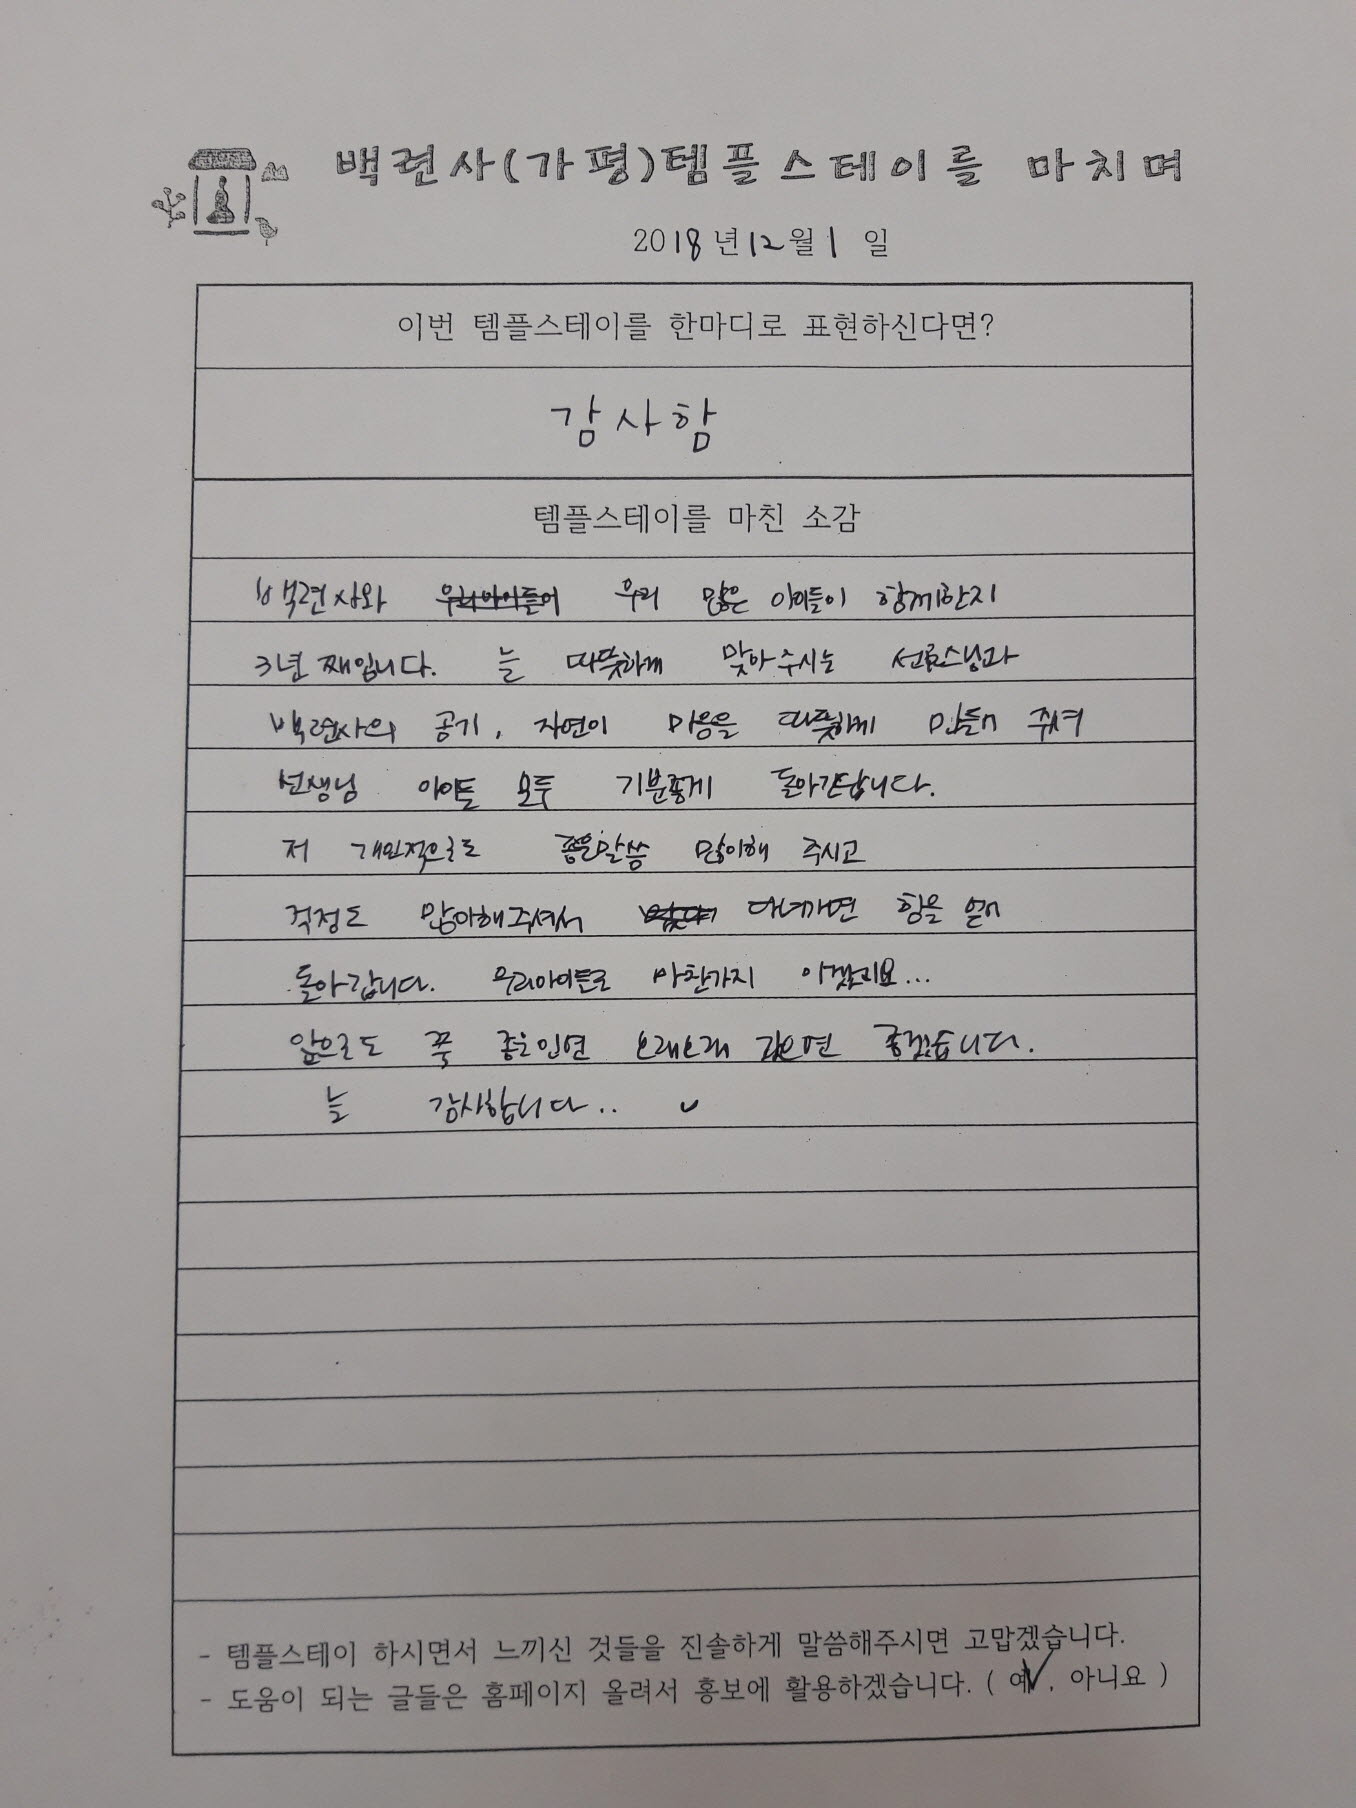 백련사(가평)템플스테이를 마치며
2018년 12월 1일
이번 템플스테이를 한마디로 표현하신다면?
감사함
템플스테이를 마친 소감
백련사와 우리 많은 아이들이 함께한지
3년째입니다. 늘 따뜻하게 맞아주시는
백련사의 공기, 자연이 마음을 따뜻하게 만들어 주셔
선생님 아이들 모두 기분좋게 돌아간답니다.
저 개인적으로도 좋은말씀 많이해 주시고
걱정도 많이해주셔서 다녀가면 힘을 얻어
돌아갑니다. 우리아이들도 마찬가지 이겠지요...
앞으로도 쭉 좋은인연 오래오래 갔으면 좋겠습니다.
늘 감사합니다..
- 템플스테이 하시면서 느끼신 것들을 진솔하게 말씀해주시면 고맙겠습니다.
- 도움이 되는 글들은 홈페이지 올려서 홍보에 활용하겠습니다. ( 예, 아니요 )